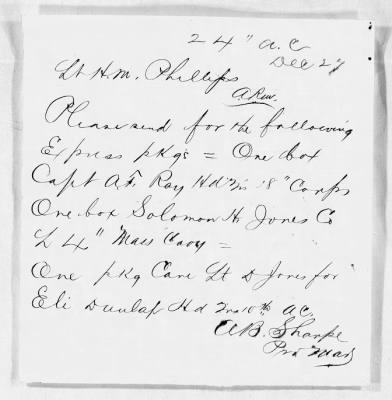 24" A.C
Dec 27
Lt H.M. Phillips
Please send for the following
Express pkgs = One box
Capt A.F. Ray Hd Qrs 18" Corps
One box Solomon H. Jones Co
L 4" Mass Cavy =
One pkg Care Lt D Jones for
Eli Dunlap Hd Qrs 10th A.C.
A.B. Sharpe
Pro Mar